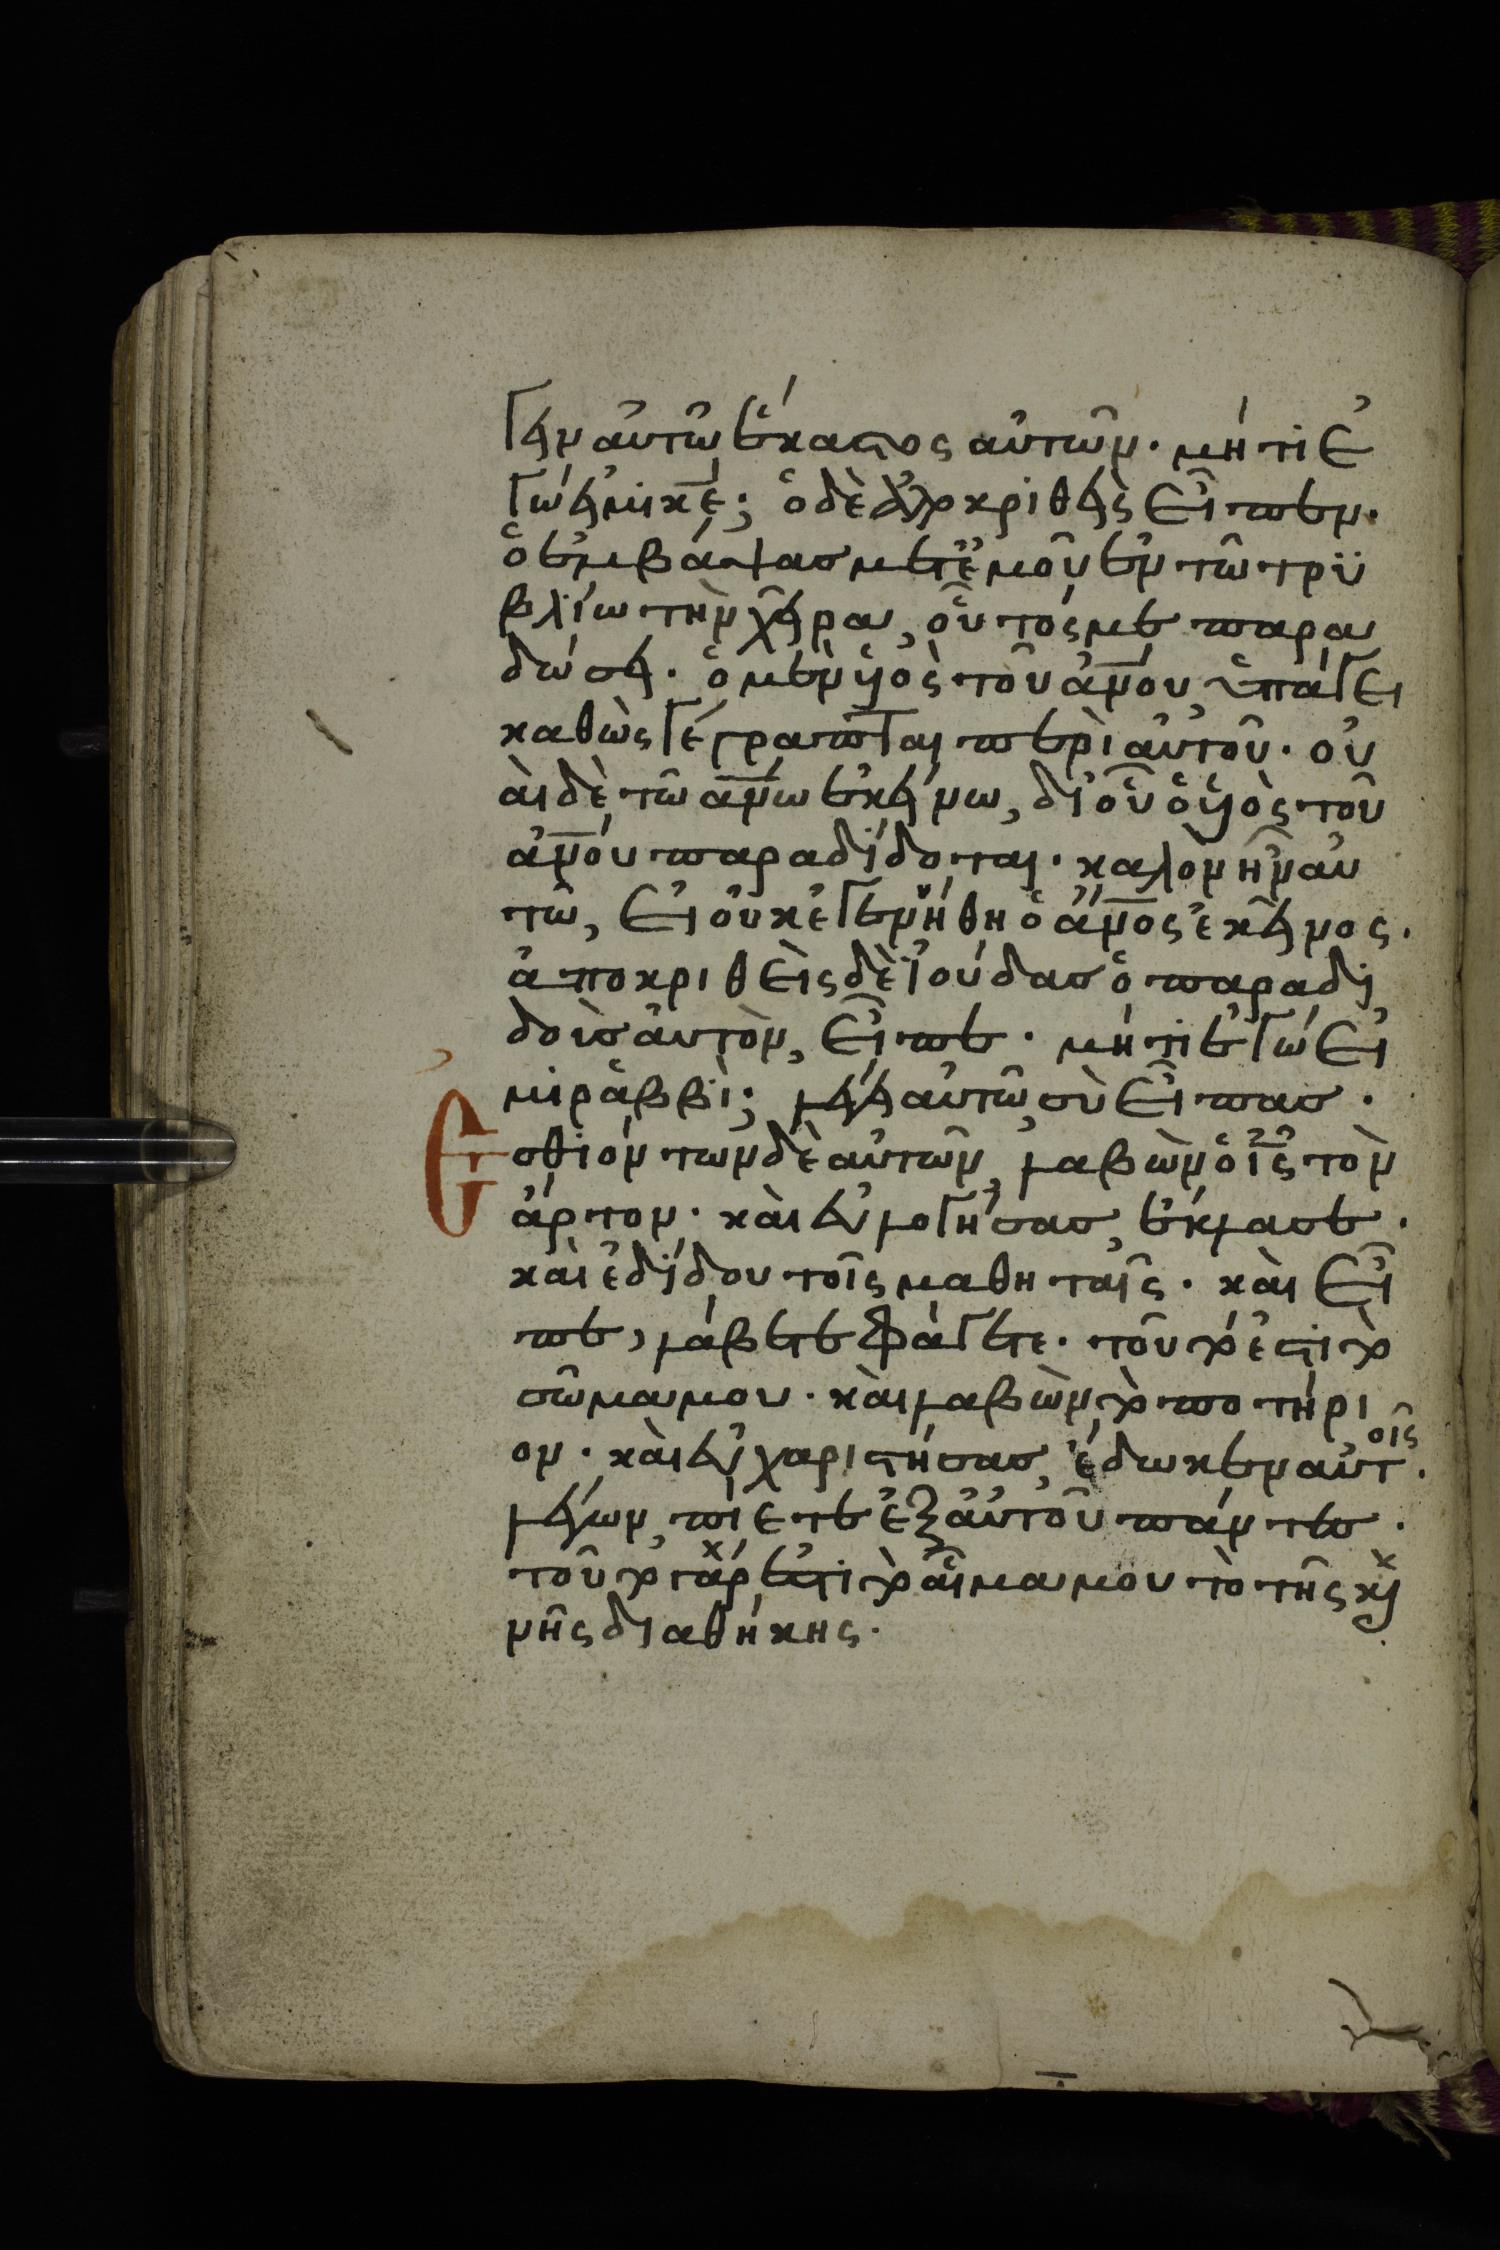 γειν αὐτῶ ἕκαστος αὐτῶν· μή τι ἐ
γώ εἰμι κε̅; ὁ δὲ ἀποκριθεὶς εἶπεν·
ὁ ἐμβάψας μετ' ἐμοῦ ἐν τῶ τρυ
βλίω τὴν χεῖρα, οὗτός με παρα
δώσει· ὁ μὲν υἱὸς τοῦ ἀν̅ου, ὑπάγει
καθὼς γέγραπται περὶ αὐτοῦ· οὐ
αὶ δὲ τῶ αν̅ω ἐκείνω, δι' οὗ ὁ υἱὸς τοῦ
ἀν̅ου παραδίδοται· καλὸν ἦν αὐ
τῶ, εἰ οὐκ ἐγεννήθη ὁ ἄν̅ος ἐκεῖνος.
ἀποκριθεὶς δὲ ἰούδας ὁ παραδι
δοὺς αὐτὸν, εἶπε· μή τι ἐγώ εἰ
μι ῥαββὶ; λέγει αὐτῶ, σὺ εἶπας.
Ἐσθιόντων δὲ αὐτῶν, λαβὼν ὁ ἰ̅ς̅ τὸν
ἄρτον· καὶ εὐλογήσας, ἔκλασε.
καὶ ἐδίδου τοῖς μαθηταῖς· καὶ εἶ
πε, λάβετε φάγετε· τοῦτό ἐστι τὸ
σῶμα μου· καὶ λαβὼν τὸ ποτήρι
ον· καὶ εὐχαριστήσας, ἔδωκεν αὐτοῖς.
λέγων, πίετε ἐξ αὐτοῦ πάντες.
τοῦτο γάρ ἐστι τὸ αἷμα μου τὸ τῆς και
νῆς διαθήκης.